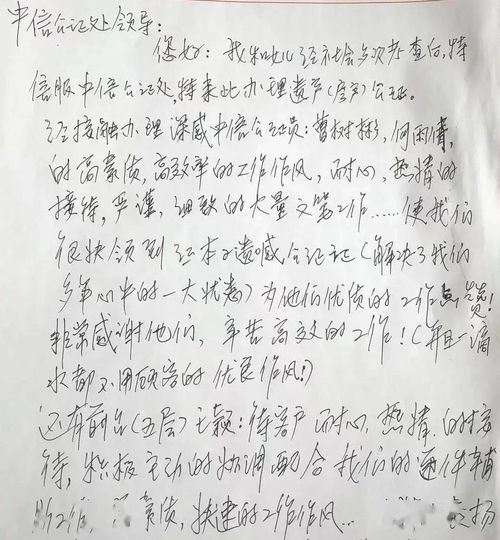 中信公证处领导：
您好：我和女儿经社会多次考查后，特
信服中信公证处，特来此办理遗产（房产）公证。
经接触办理深感中信公证员：曹树彬，何雨倩，
的高素质，高效率的工作作风，耐心，热情的
接待，严谨，细致的大量文笔工作……使我们
很快领到这本遗嘱公证证（解决了我们
多年心中的一大忧患）为他们优质的工作点赞！
非常感谢他们，辛苦高效的工作！（并且一滴
水都不用顾客的优良作风！）
还有前台（五层）王颖：待客户耐心，热情的接
待，积极主动的协调配合我们的
工作 素质，快速的工作作风… 扬